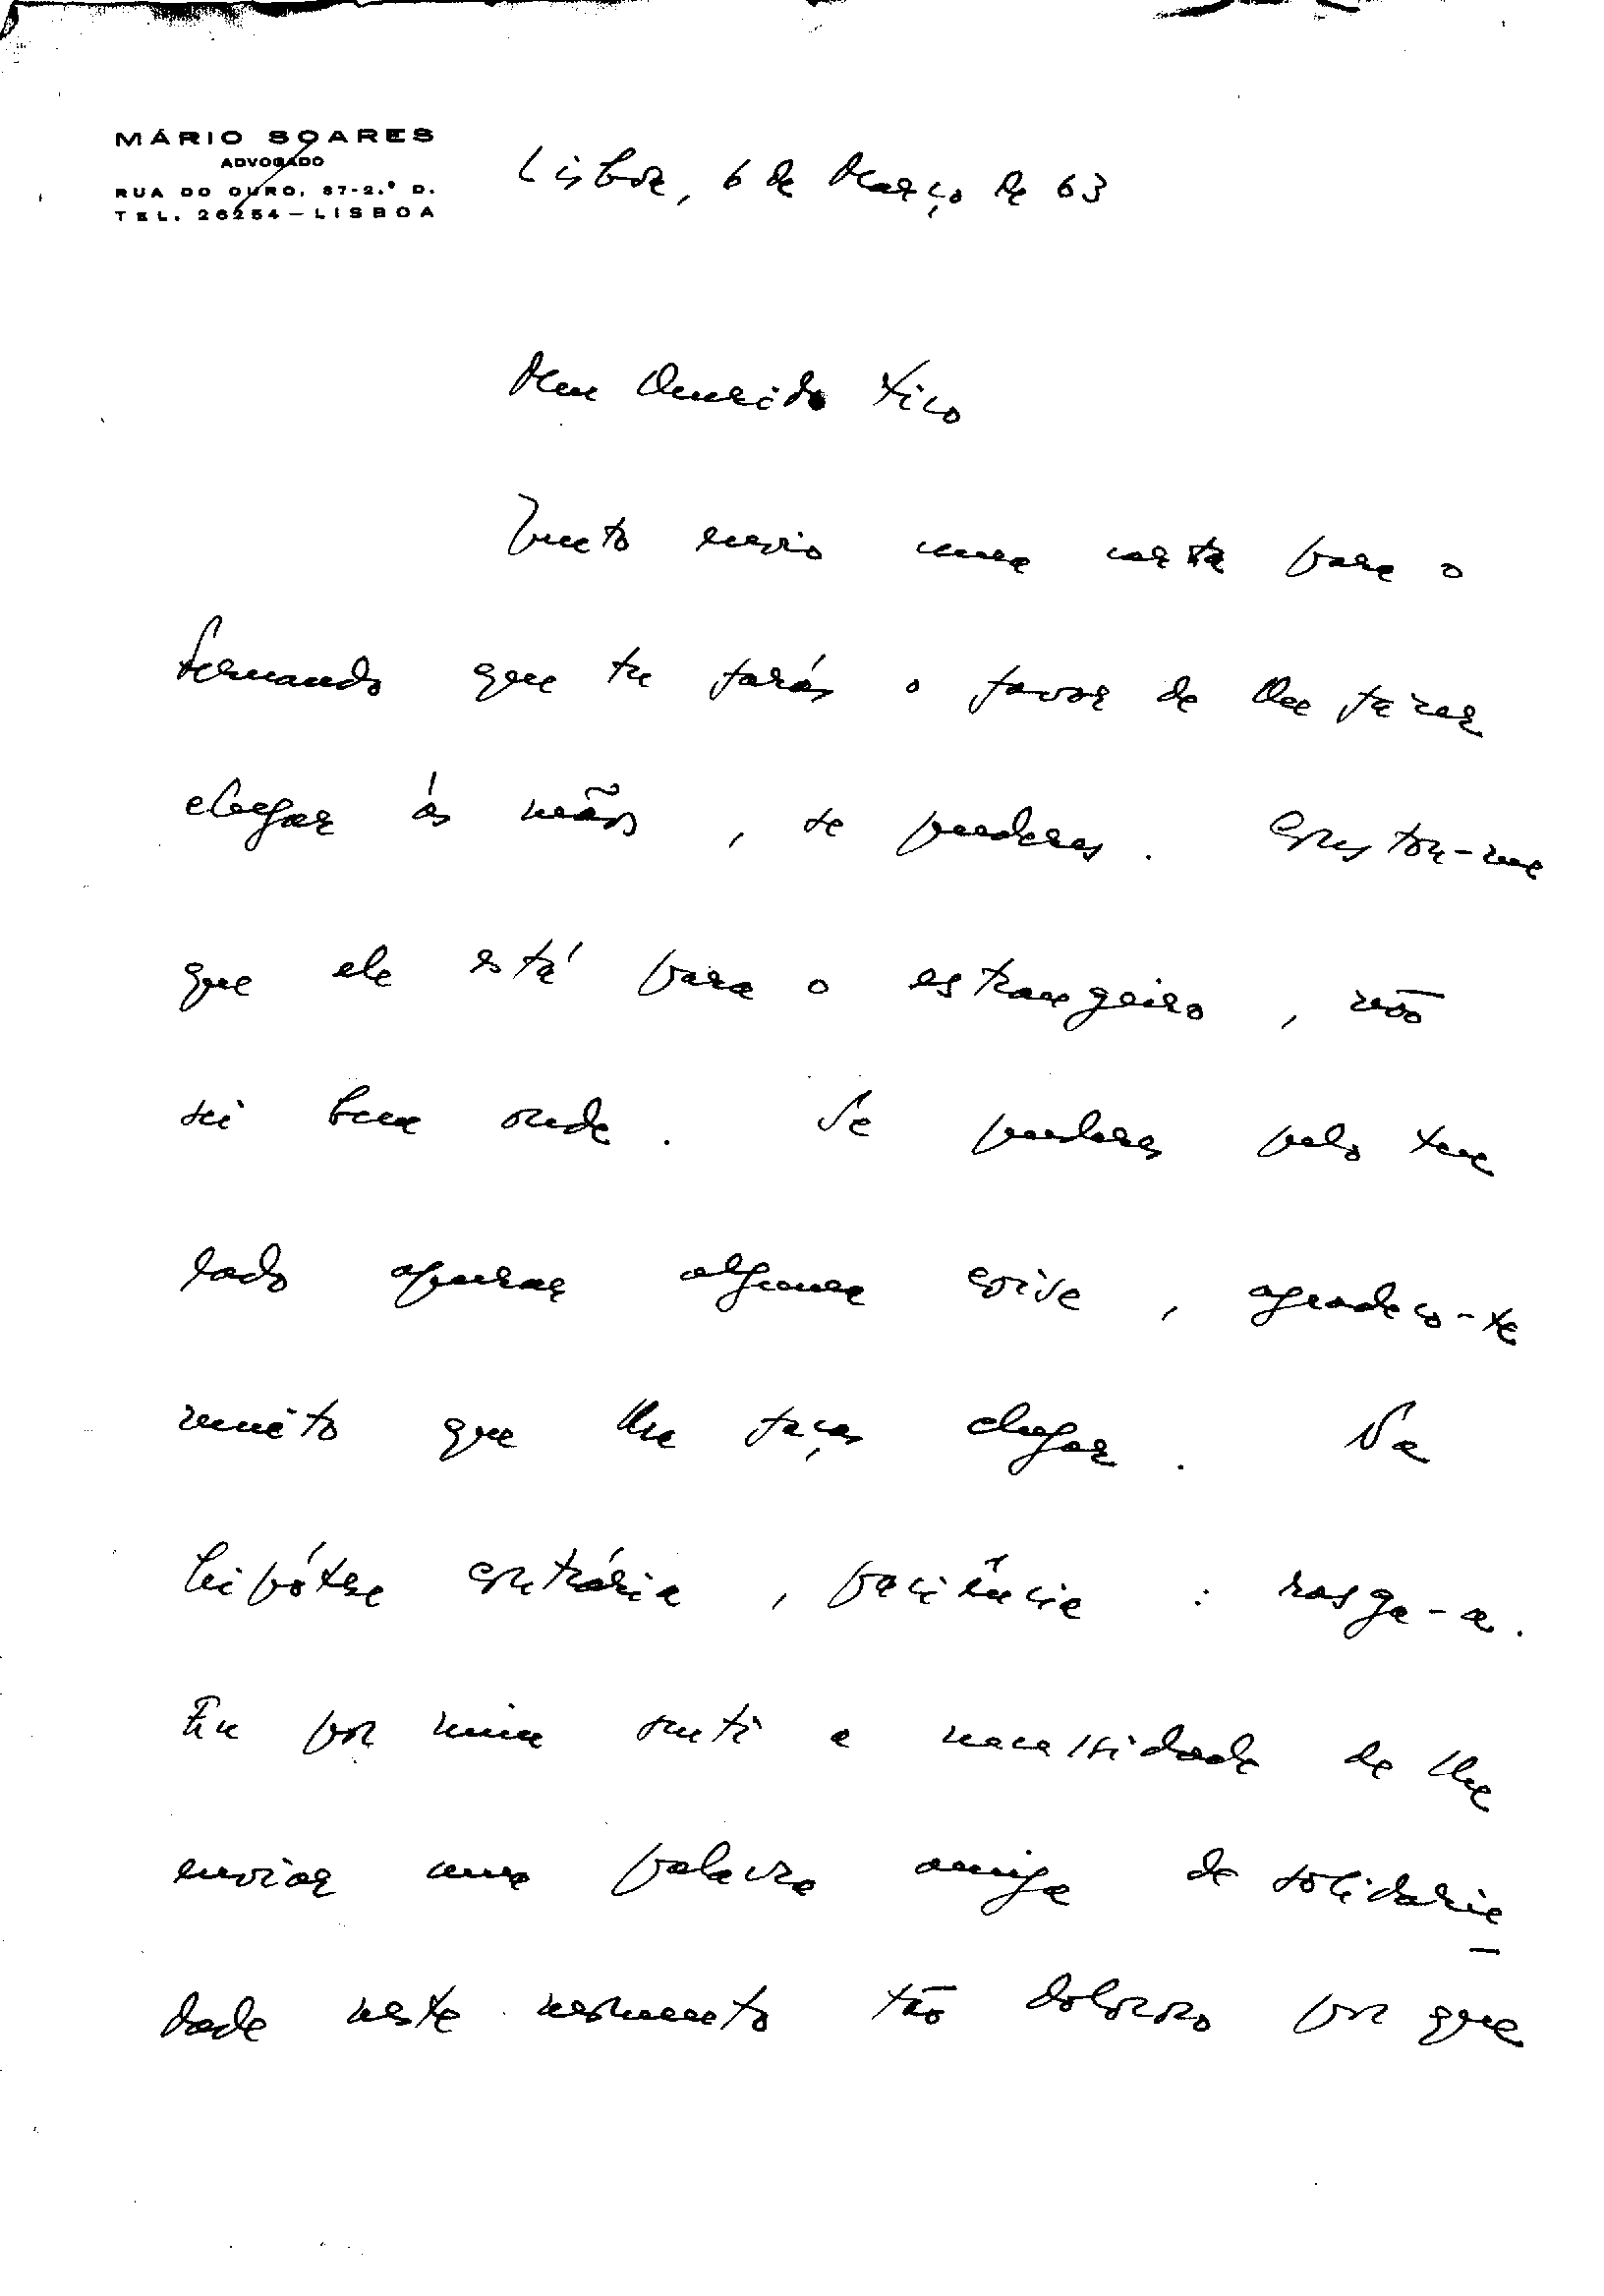 MÁRIO SOARES
ADVOGADO
RUA DO OURO, 87-2.º D.
TEL. 26254 — LISBOA
Lisboa, 6 de Março de 63
Meu Querido Xico
Junto envio uma carta para o
Fernando que tu farás o favor de lhe fazer
chegar ás mãos, se puderes. Constou-me
que ele está para o estrangeiro, não
sei bem onde. Se puderes pelo teu
lado apurar alguma coisa, agradeço-te
muito que lhe faças chegar. Na
hipótese contrária, paciência: rasga-a.
Eu por mim senti a necessidade de lhe
enviar uma palavra amiga de solidarie-
dade neste momento tão doloroso por que